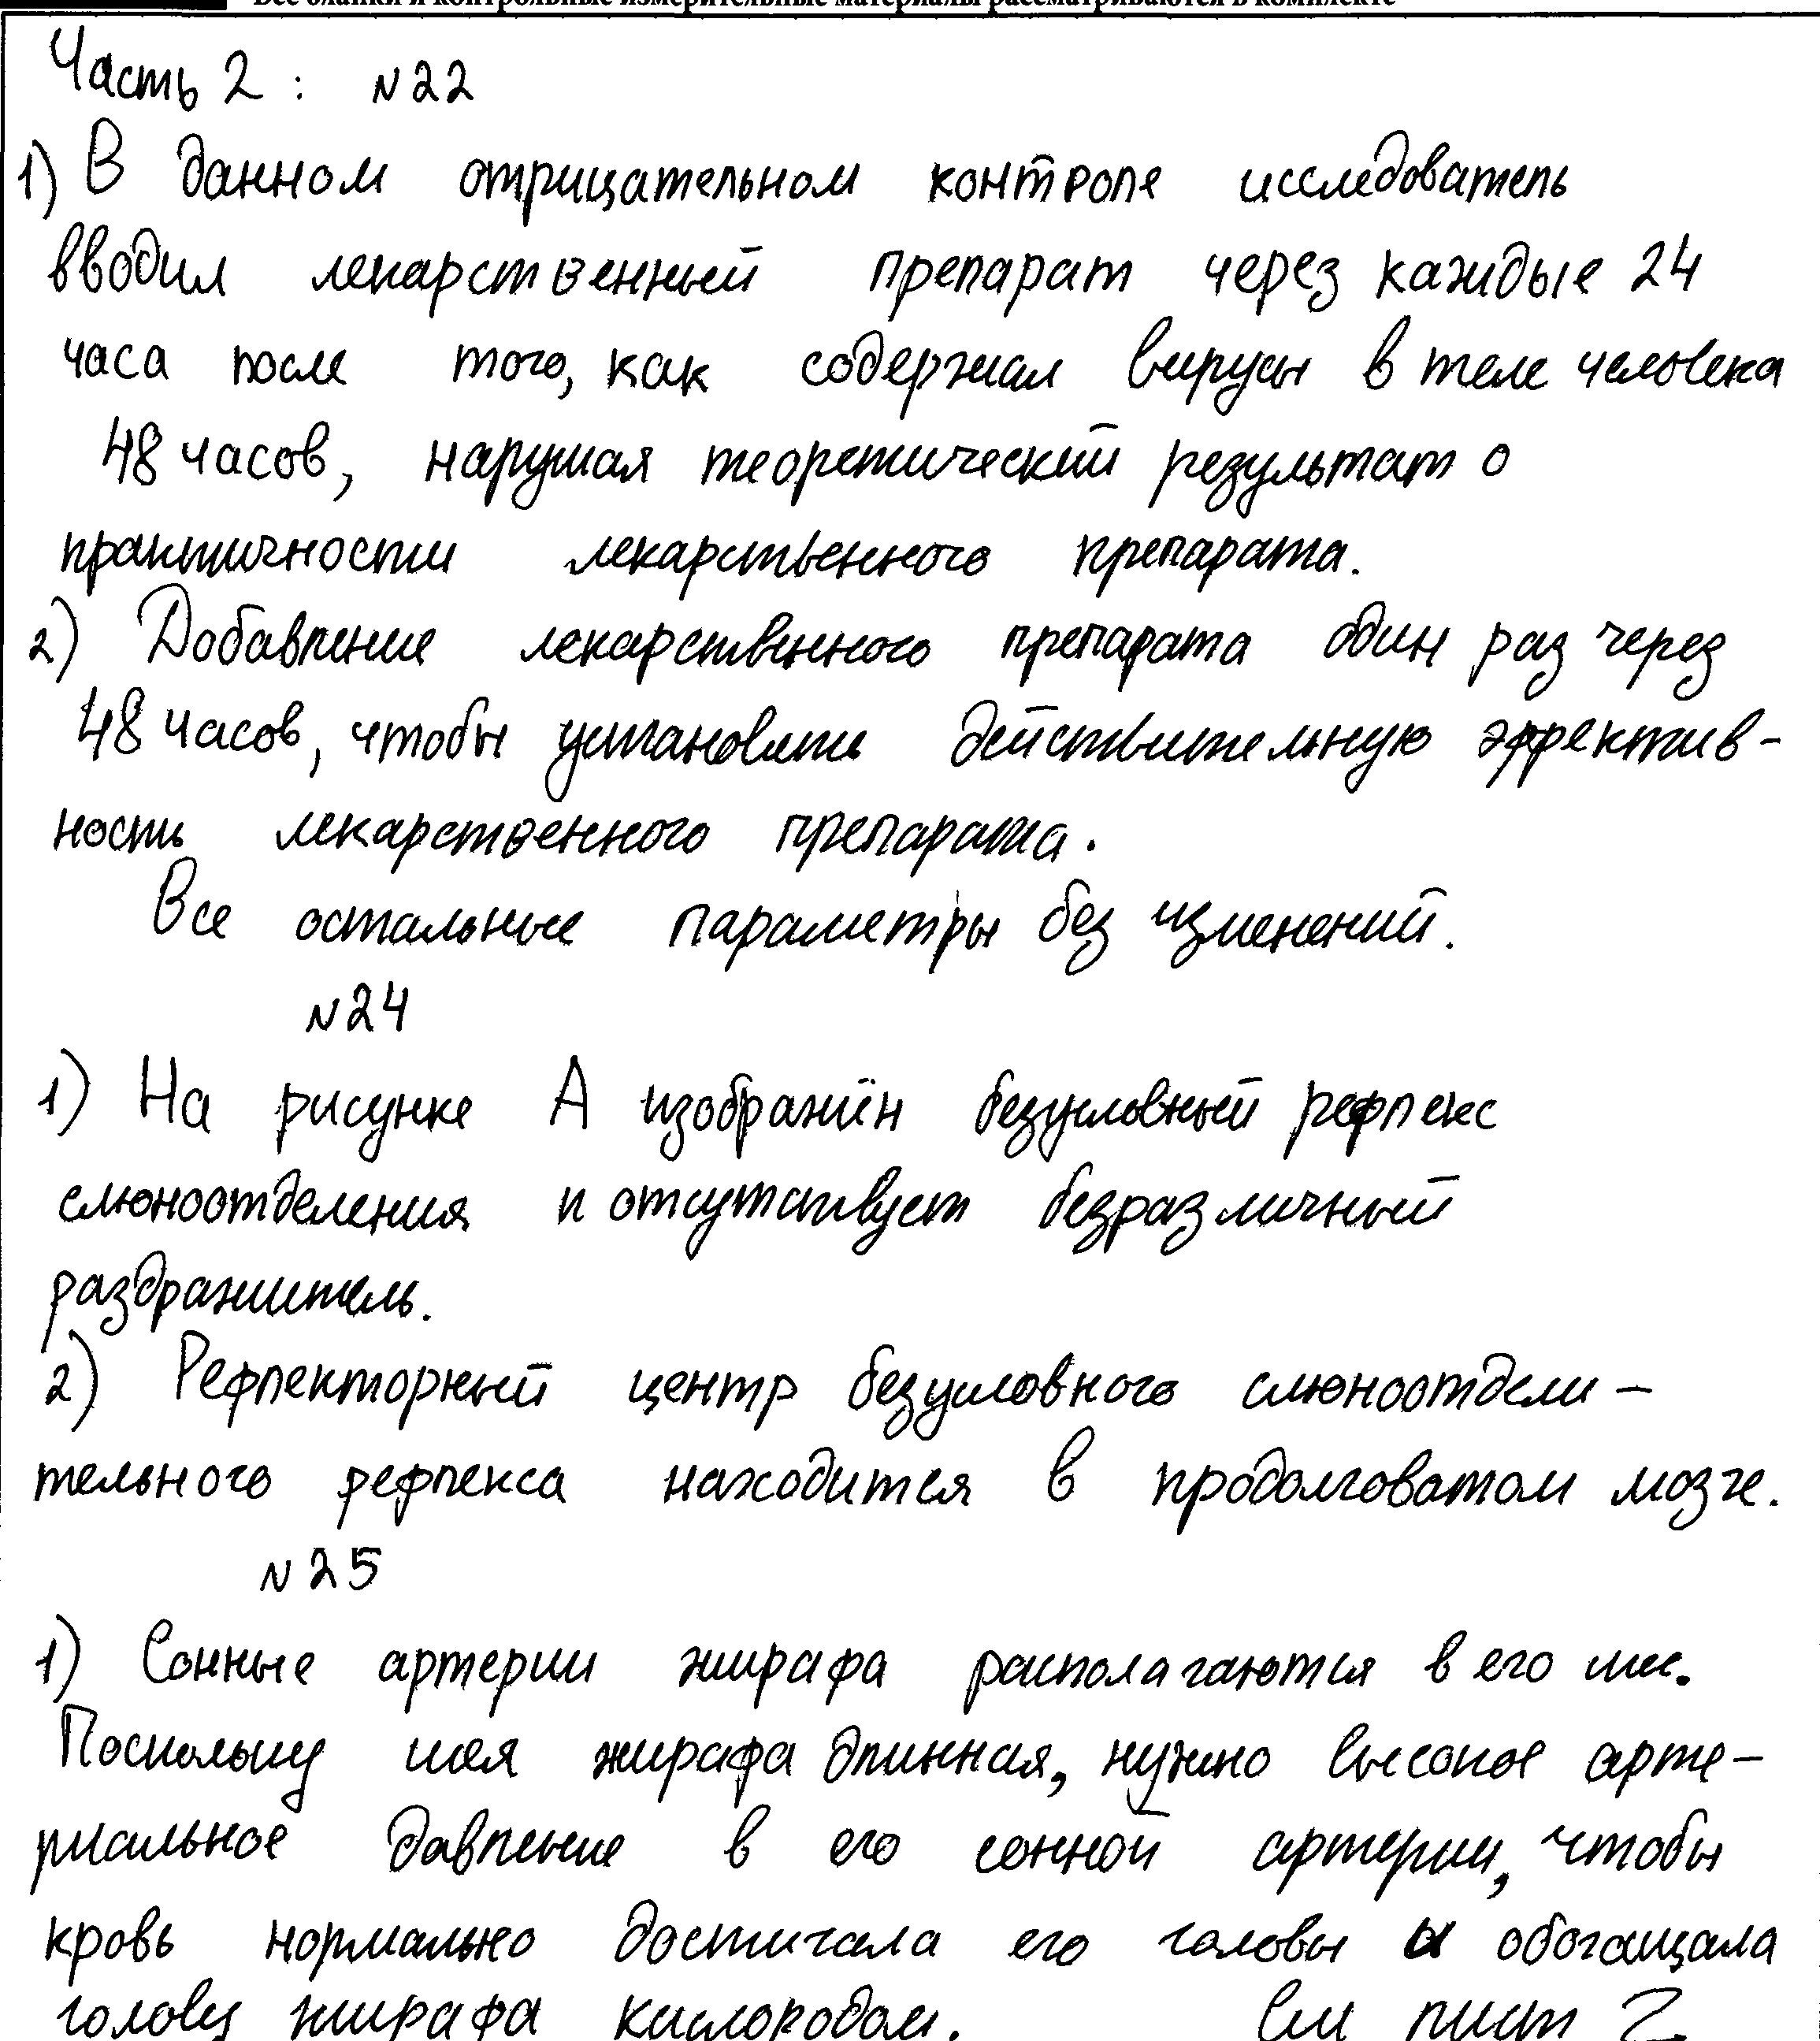 Все бланки и контрольные измерительные материалы рассматриваются в комплекте
Часть 2 : N22
1) В данном отрицательном контроле исследователь
вводил лекарственный препарат через каждые 24
часа после того, как содержал вирусы в теле человека
48 часов, нарушая теоретический результат о
практичности лекарственного препарата.
2) Добавление лекарственного препарата один раз через
48 часов, чтобы установить действительную эффектив-
ность лекарственного препарата.
Все остальные параметры без изменений.
N24
1) На рисунке А изображён безусловный рефлекс
слюноотделения и отсутствует безразличный
раздражитель.
2) Рефлекторный центр безусловного слюноотдели-
тельного рефлекса находится в продолговатом мозге.
N25
1) Сонные артерии жирафа располагаются в его шее.
Поскольку шея жирафа длинная, нужно высокое арте-
риальное давление в его сонной артерии, чтобы
кровь нормально достигала его головы и обогащала
голову жирафа кислородом. См лист 2